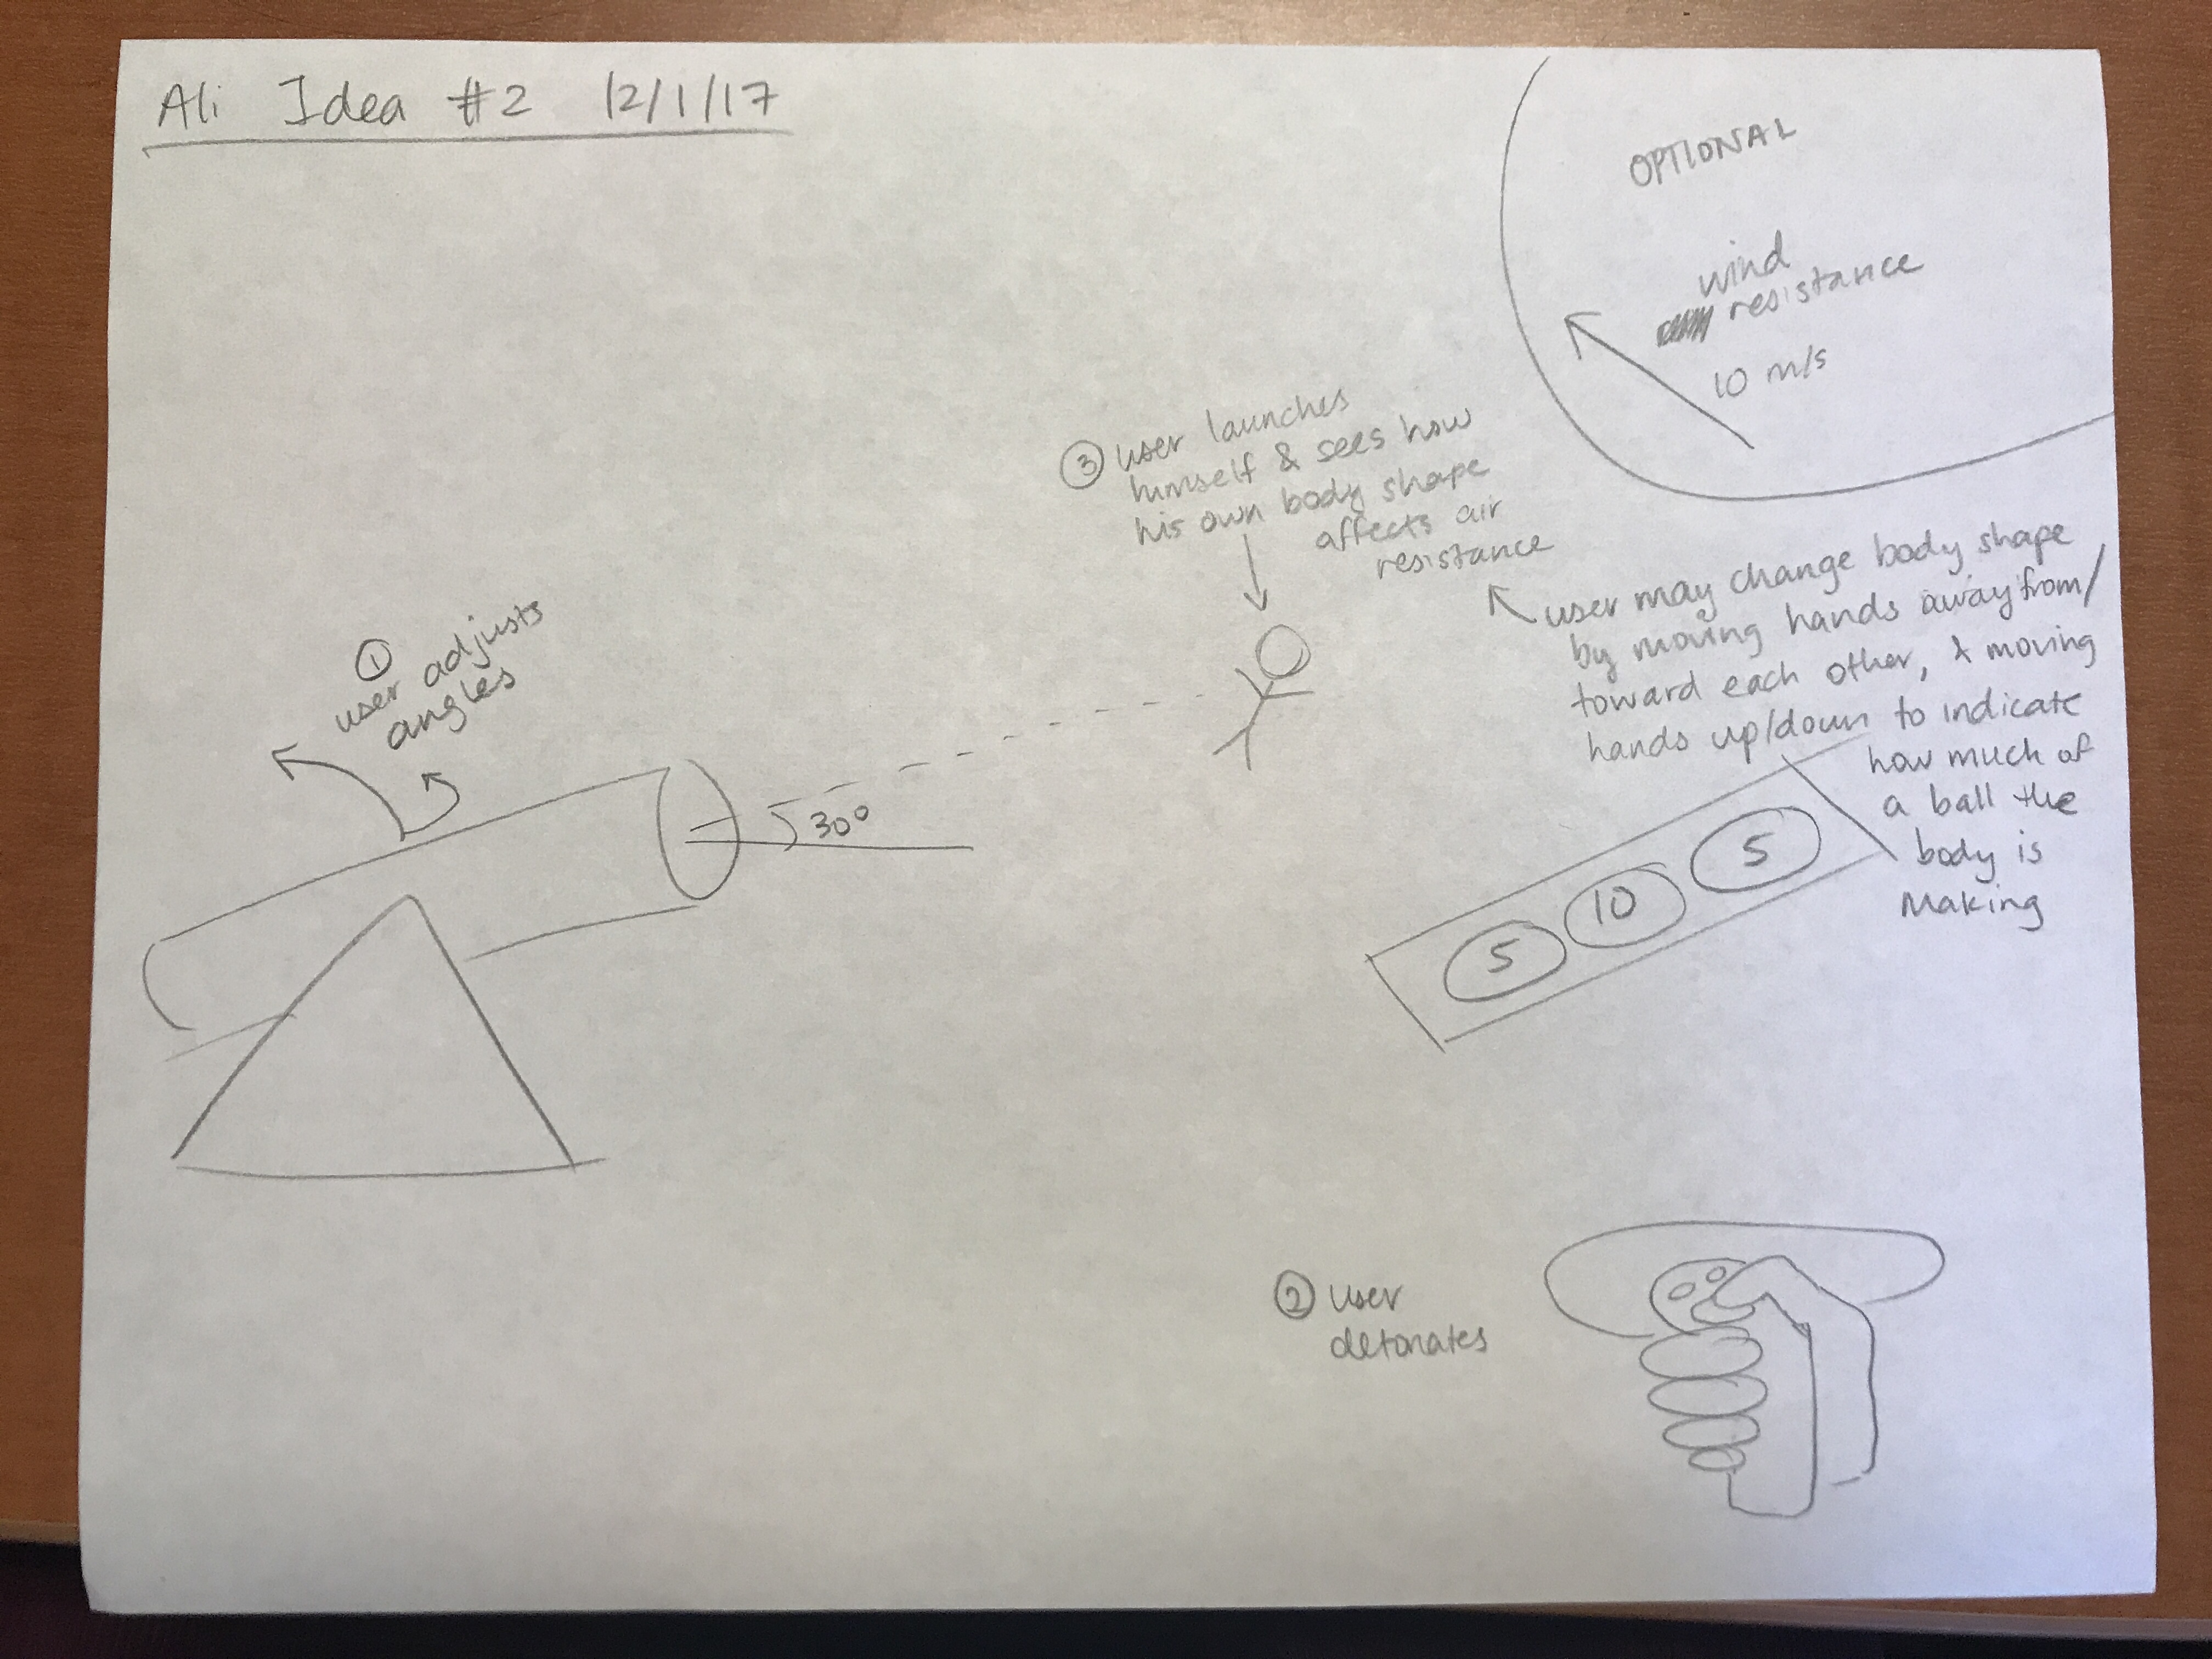 Ali Idea #2 12/1/17
OPTIONAL
wind
resistance
10 m/s
③ user launches
himself & sees how
his own body shape
affects air
resistance
user may change body shape
by moving hands away from/
toward each other, & moving
hands up/down to indicate
how much of
a ball the
body is
making
①
user adjusts
angles
30°
5 10 5
② user
detonates